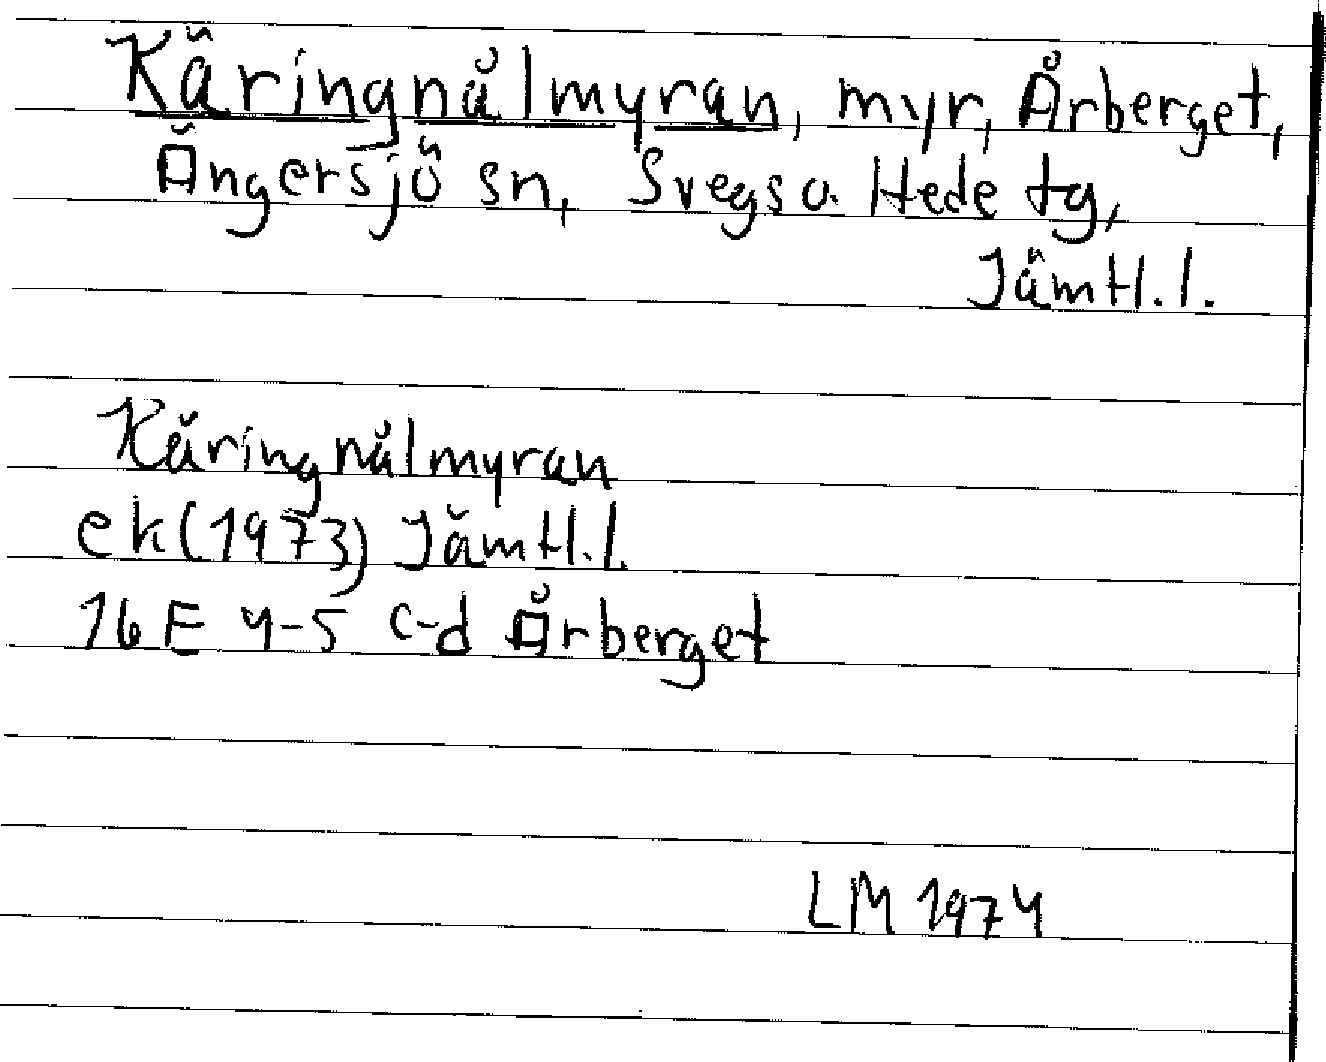 Käringnålmyran, myr, Årberget,
Ängersjö sn, Svegs o. Hede tg,
Jämtl. l.
Käringnålmyran
ek (1973) Jämtl. l.
16 E 4-5 c-d Årberget
LM 1974